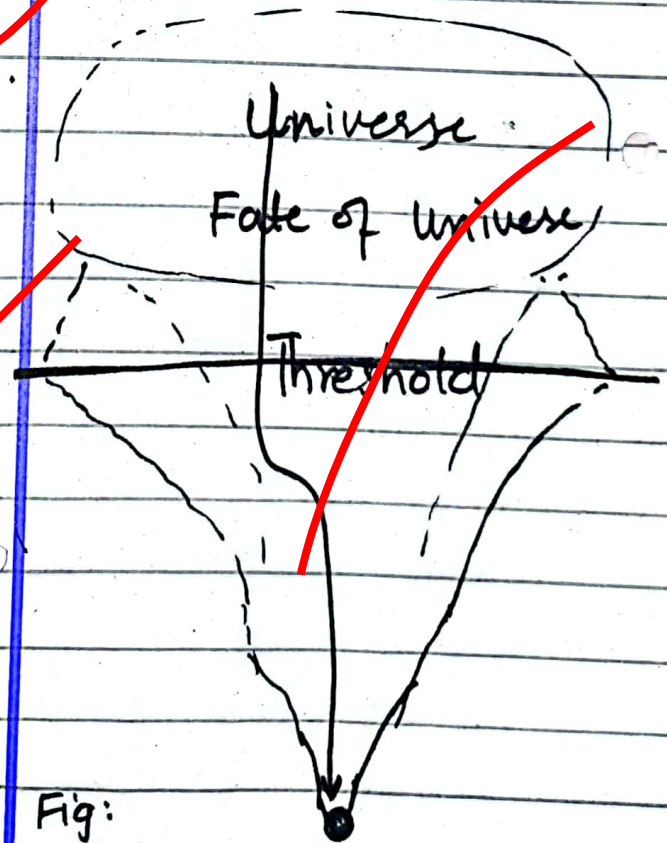 Universe
Fate of Univese
Threshold
Fig: